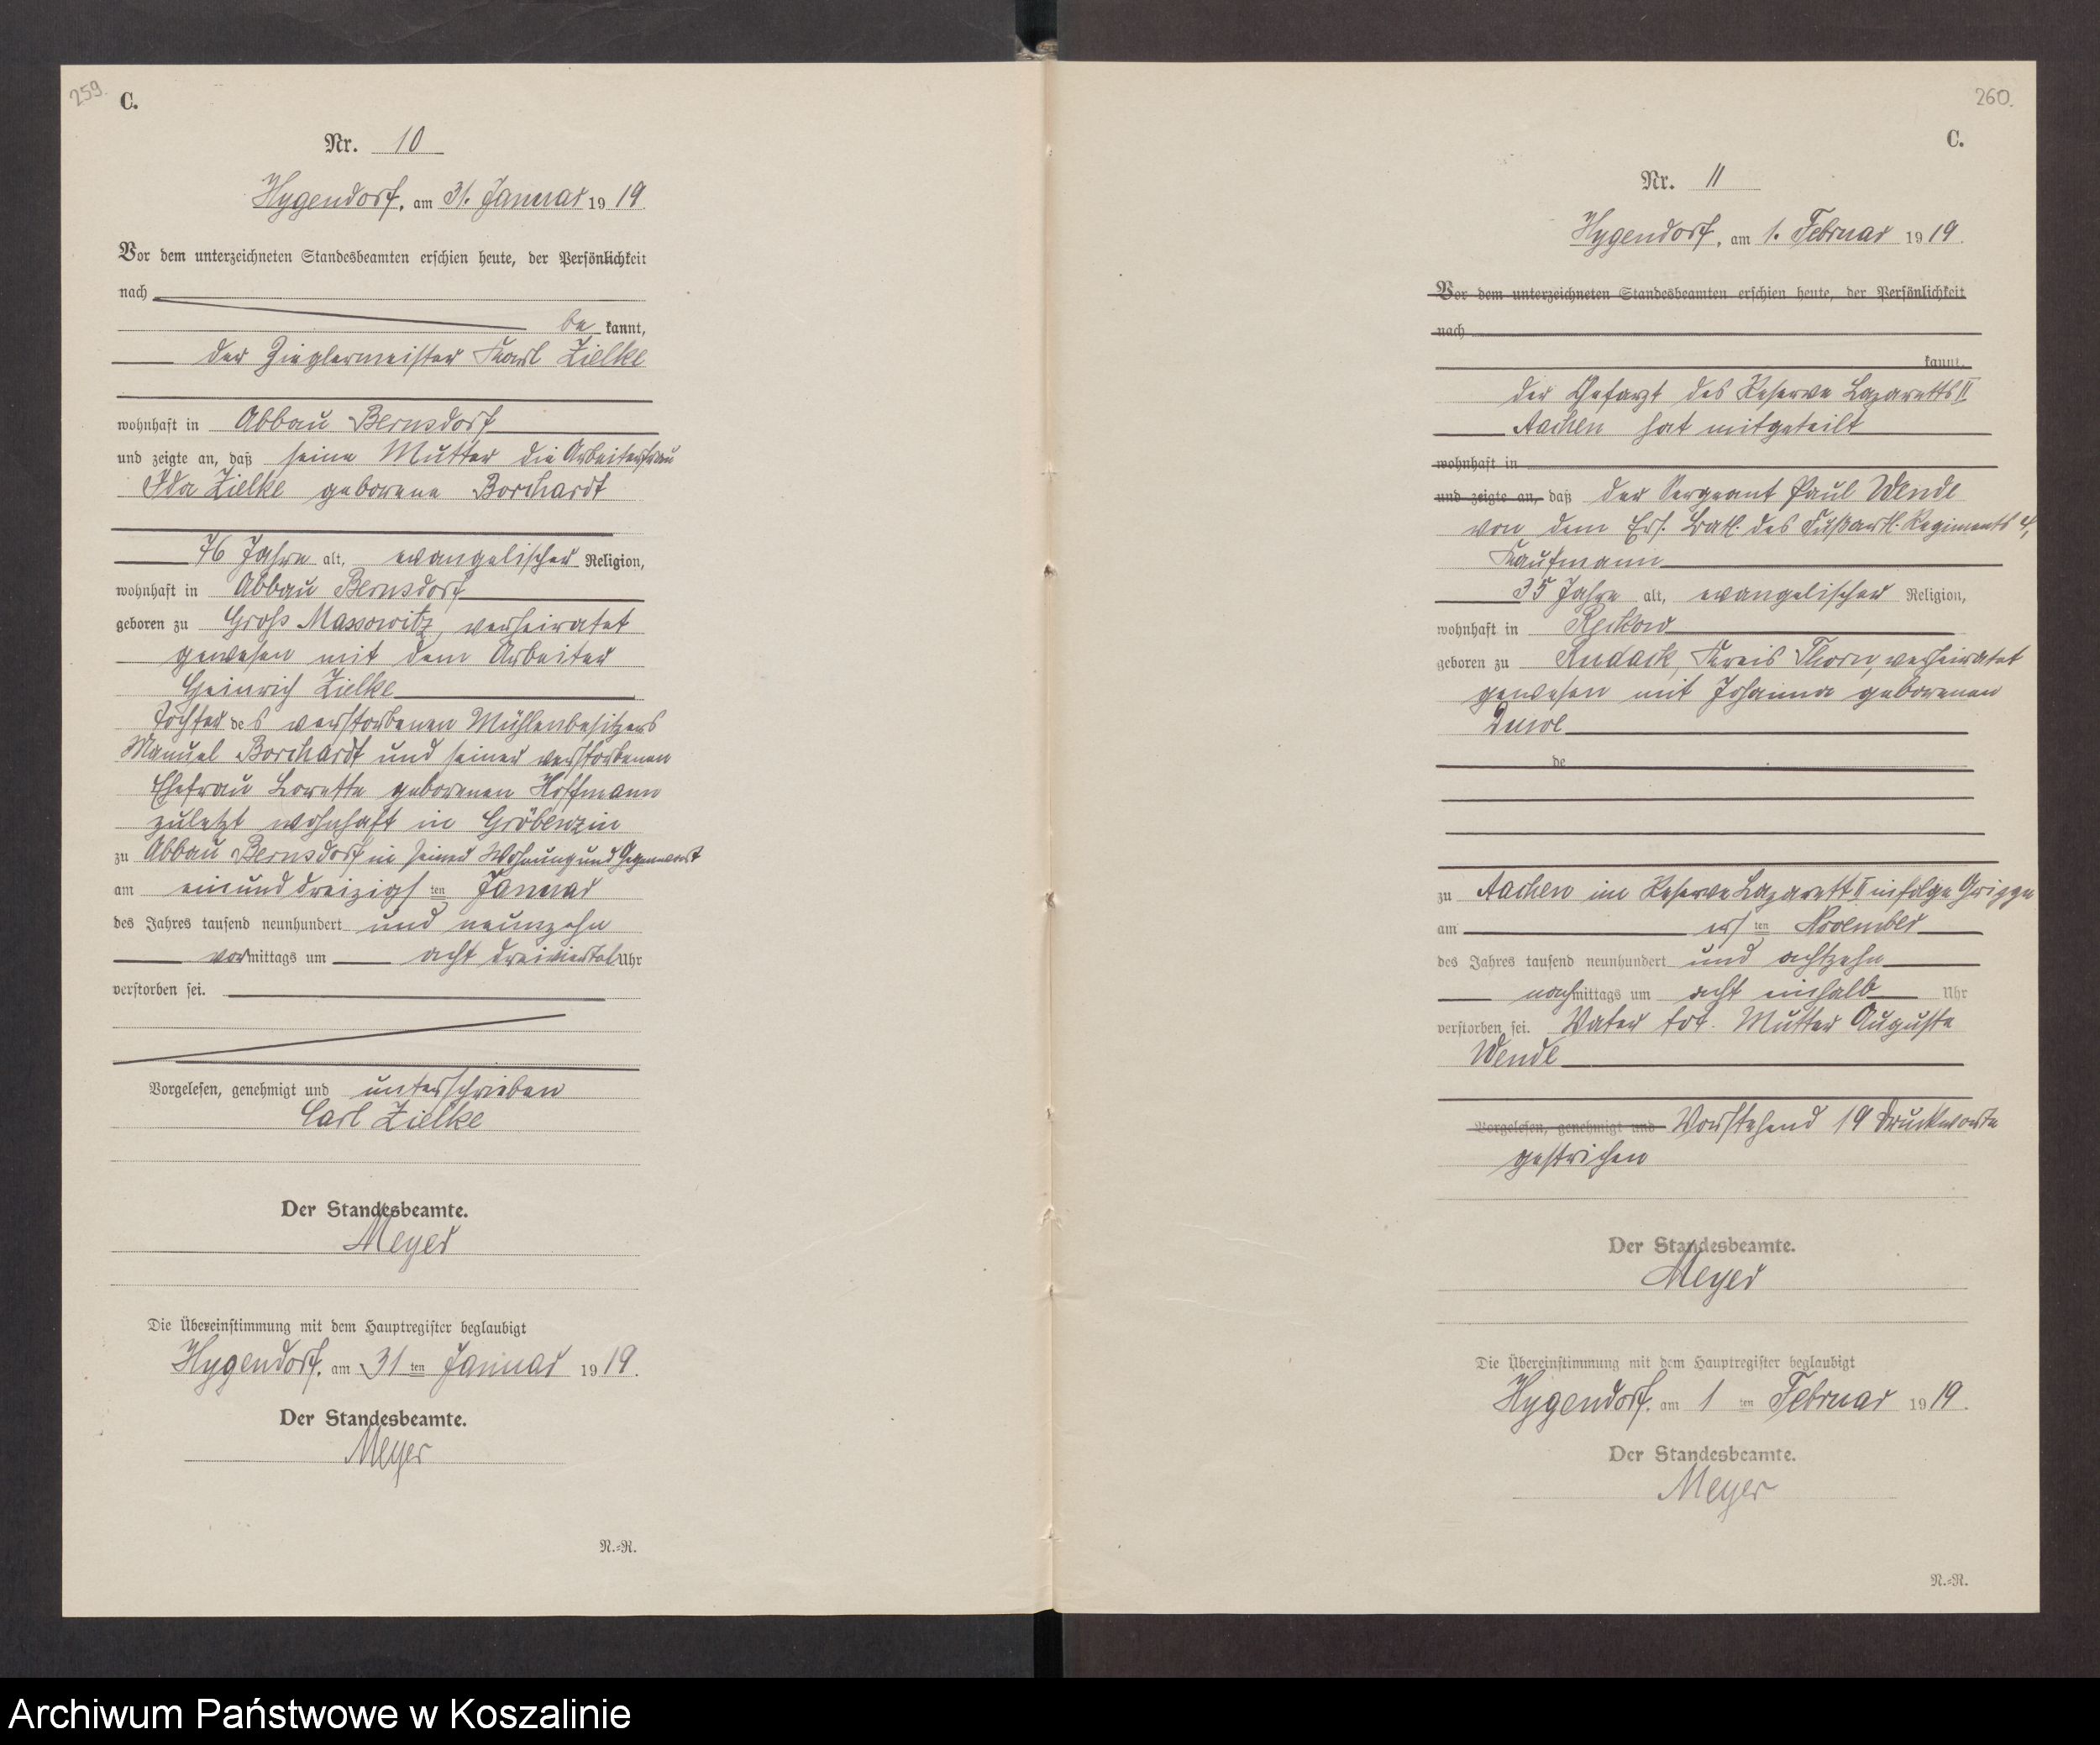 259.
C.
Nr. 10
Hygendorf, am 31. Januar 1919.
Vor dem unterzeichneten Standesbeamten erschien heute, der Persönlichkeit
nach
be kannt,
der Zieglermeister Karl Zielke
wohnhaft in Abbau Bernsdorf
und zeigte an, daß seine Mutter die Arbeiterfrau
Ida Zielke geborene Borchardt
76 Jahre alt, evangelischer Religion,
wohnhaft in Abbau Bernsdorf
geboren zu Gross Massowitz, verheiratet
gewesen mit dem Arbeiter
Heinrich Zielke
Tochter des verstorbenen Mühlenbesitzers
Manuel Borchardt und seiner verstorbenen
Ehefrau Lorette geborenen Hoffmann
zuletzt wohnhaft in Gröbenzin
zu Abbau Bernsdorf in seiner Wohnung und Gegenwart
am einunddreizigsten Januar
des Jahres tausend neunhundert und neunzehn
vormittags um acht dreiviertel Uhr
verstorben sei.
Vorgelesen, genehmigt und unterschrieben
Carl Zielke
Der Standesbeamte.
Meyer
Die Übereinstimmung mit dem Hauptregister beglaubigt
Hygendorf, am 31ten Januar 1919.
Der Standesbeamte.
Meyer
N.=R.
260.
C.
Nr. 11
Hygendorf, am 1. Februar 1919.
Vor dem unterzeichneten Standesbeamten erschien heute, der Persönlichkeit
nach
kannt,
der Chefarzt des Reserve Lazaretts II
Aachen hat mitgeteilt
wohnhaft in
und zeigte an, daß der Sergeant Paul Wendl
von dem Ers. Batl. des Fußartl. Regiments 4,
Kaufmann
35 Jahre alt, evangelischer Religion,
wohnhaft in Reckow
geboren zu Rudack, Kreis Thorn, verheiratet
gewesen mit Johanna geborenen
de
zu Aachen im Reserve Lazarett II infolge Grippe
am ersten November
des Jahres tausend neunhundert und achtzehn
nachmittags um acht einhalb Uhr
verstorben sei. Vater tot. Mutter Auguste
Wendl
Vorgelesen, genehmigt und Vorstehend 19 Druckworte
gestrichen
Der Standesbeamte.
Meyer
Die Übereinstimmung mit dem Hauptregister beglaubigt
Hygendorf, am 1 ten Februar 1919.
Der Standesbeamte.
Meyer
N.=R.
Archiwum Państwowe w Koszalinie